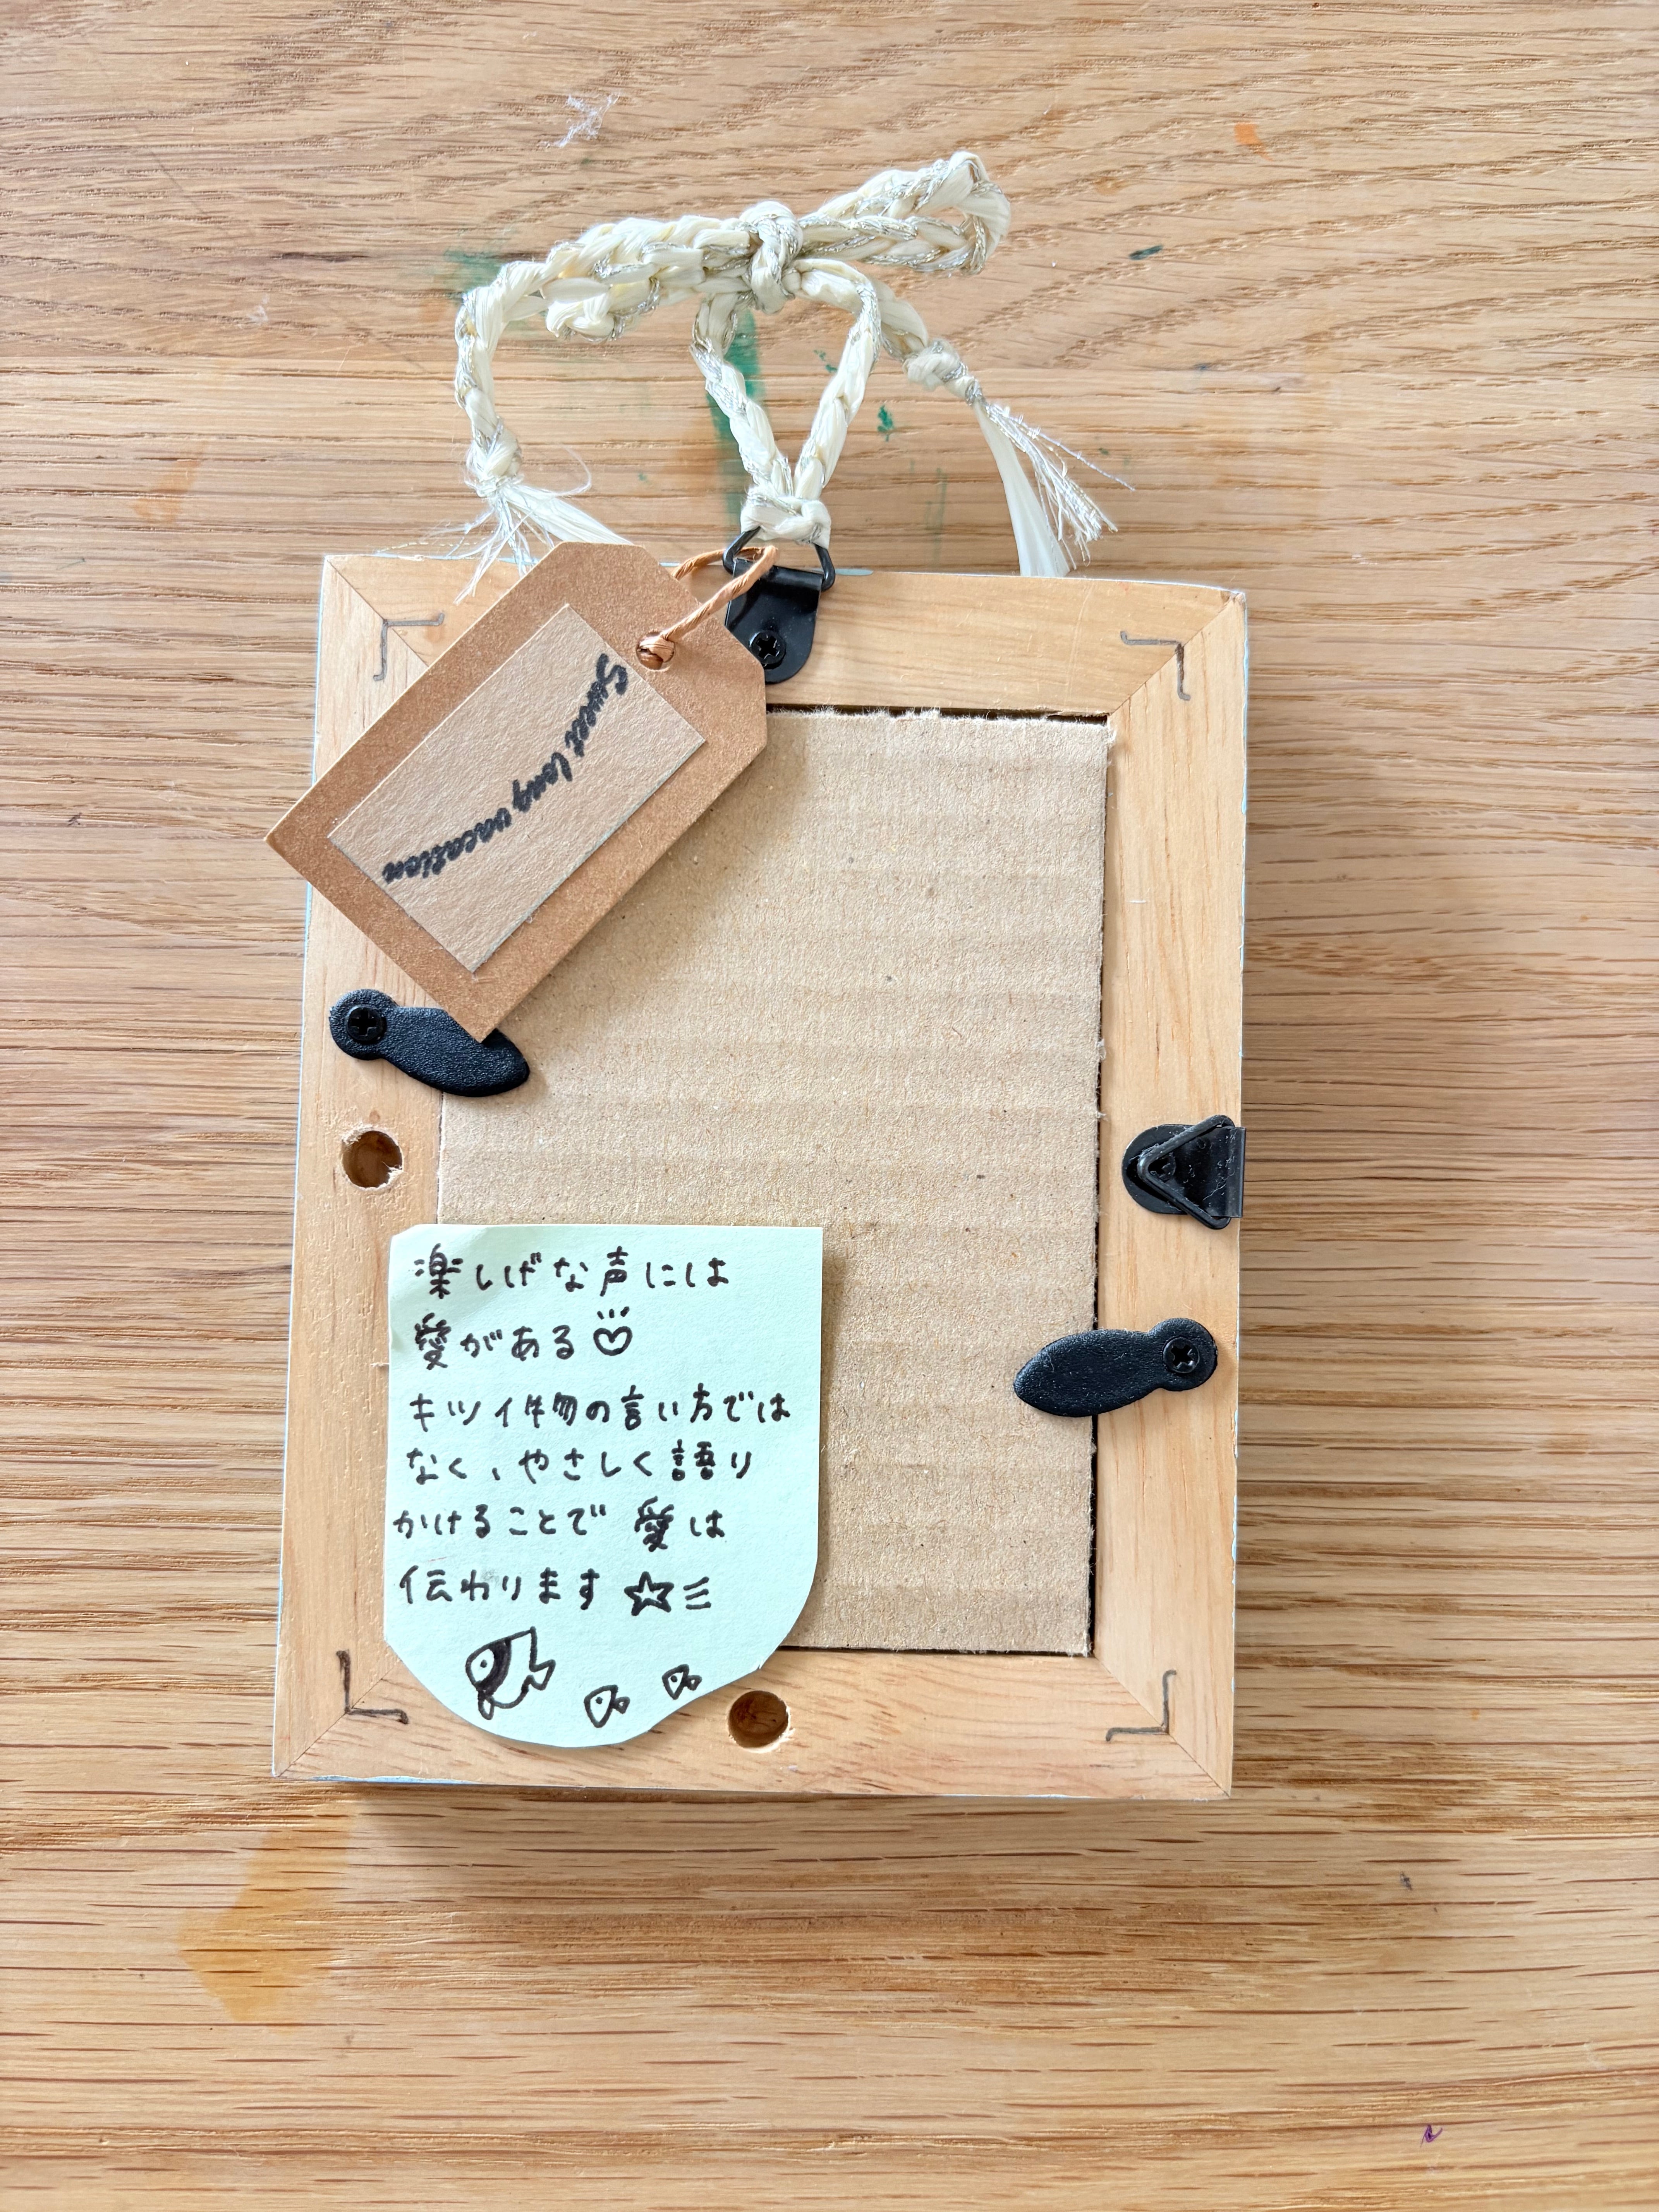 Sweet long vacation
楽しげな声には
愛がある
キツイ物の言い方では
なく、やさしく語り
かけることで 愛は
伝わります